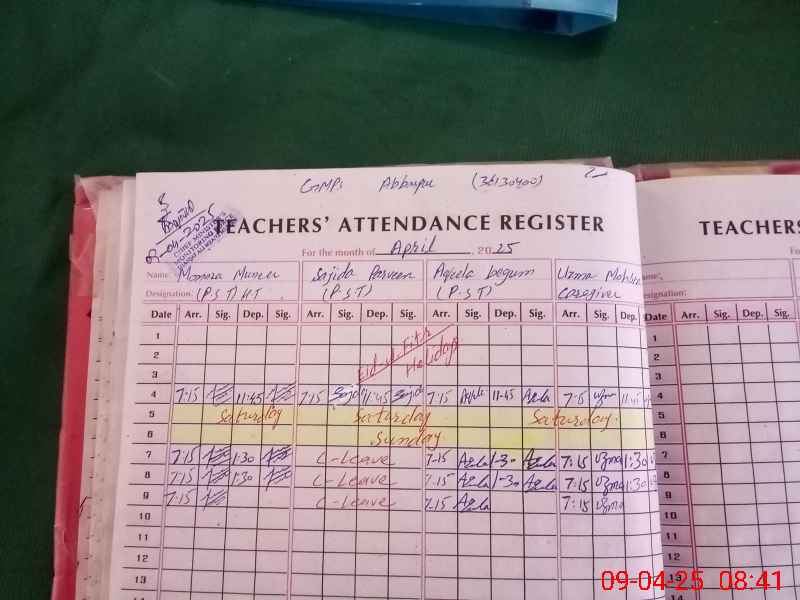 GMPS Abbaspur (36130400) 2
09-04-2025
TEACHERS' ATTENDANCE REGISTER
TEACHERS'
For the month of April, 2025
Name: Sajida Parveen Aqeela begum Uzma
Designation: (P.S.T) HT. (P.S.T) (P.S.T) Caregiver
Date Arr. Sig. Dep. Sig. Arr. Sig. Dep. Sig. Arr. Sig. Dep. Sig. Arr. Sig. Dep.
Date Arr. Sig. Dep. Sig. Arr. Sig.
1
2 Eid ul Fitr
3 Holidays
4 7:15 11:45 7:15 11:45 7:15 11-45 7:15 11:45
5 Saturday Saturday Saturday
6 Sunday
7 7:15 1:30 C-Leave 7-15 Aqela 1-30 Aqela 7:15 uzma 1:30
8 7:15 1:30 C-Leave 7:15 Aqela 1-30 Aqela 7:15 uzma 1:30
9 7:15 C-Leave 7:15 Aqela 7:15 uzma
10
11
12
13
1
2
3
4
5
6
7
8
9
10
11
12
13
14
09-04-25 08:41